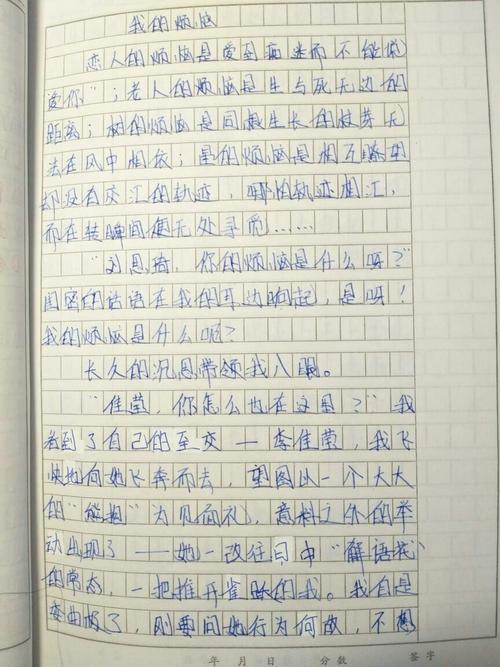 我的烦恼
恋人的烦恼是爱到痴迷而不能说
爱你"；老人的烦恼是生与死无边的
距离；树的烦恼是同根生长的枝芽无
法在风中相依；星的烦恼是相互瞭望
却没有交汇的轨迹，哪怕轨迹相汇，
而在转瞬间便无处寻觅……
"刘思琦，你的烦恼是什么呀？"
闺密的话语在我的耳边响起，是呀！
我的烦恼是什么呢？
长久的沉思带领我入眠。
"佳莹，你怎么也在这里？"我
看到了自己的至交—李佳莹，我飞
快地向她飞奔而去，望图以一个大大
的"熊抱"为见面礼，意料之外的举
动出现了——她一改往日中"解语花"
的常态，一把推开雀跃的我。我自是
委曲极了，刚要问她行为何故，不想
年 月 日 分数 签字